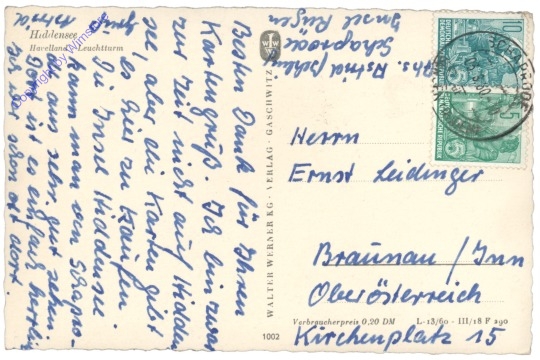 Hiddensee
Havelland - Leuchtturm
Copyright by Wimstore
Besten Dank für Ihren
Kartengruß. Ich bin zwar
zur Zeit nicht auf Hidden
see aber die Karten gibt
es hier zu kaufen.
Die Insel Hiddensee
kann man von Schapro-
de aus sehr gut sehen
Dort ist es einfach herrlich
Ich war schon oft dort.
Astrid
Schaprode
Insel Rügen
WALTER WERNER KG · VERLAG · GASCHWITZ
1002
10
5
Herrn
Ernst Leidinger
Braunau / Inn
Oberösterreich
Kirchenplatz 15
Verbraucherpreis 0,20 DM L-13/60 - III/18 F 290